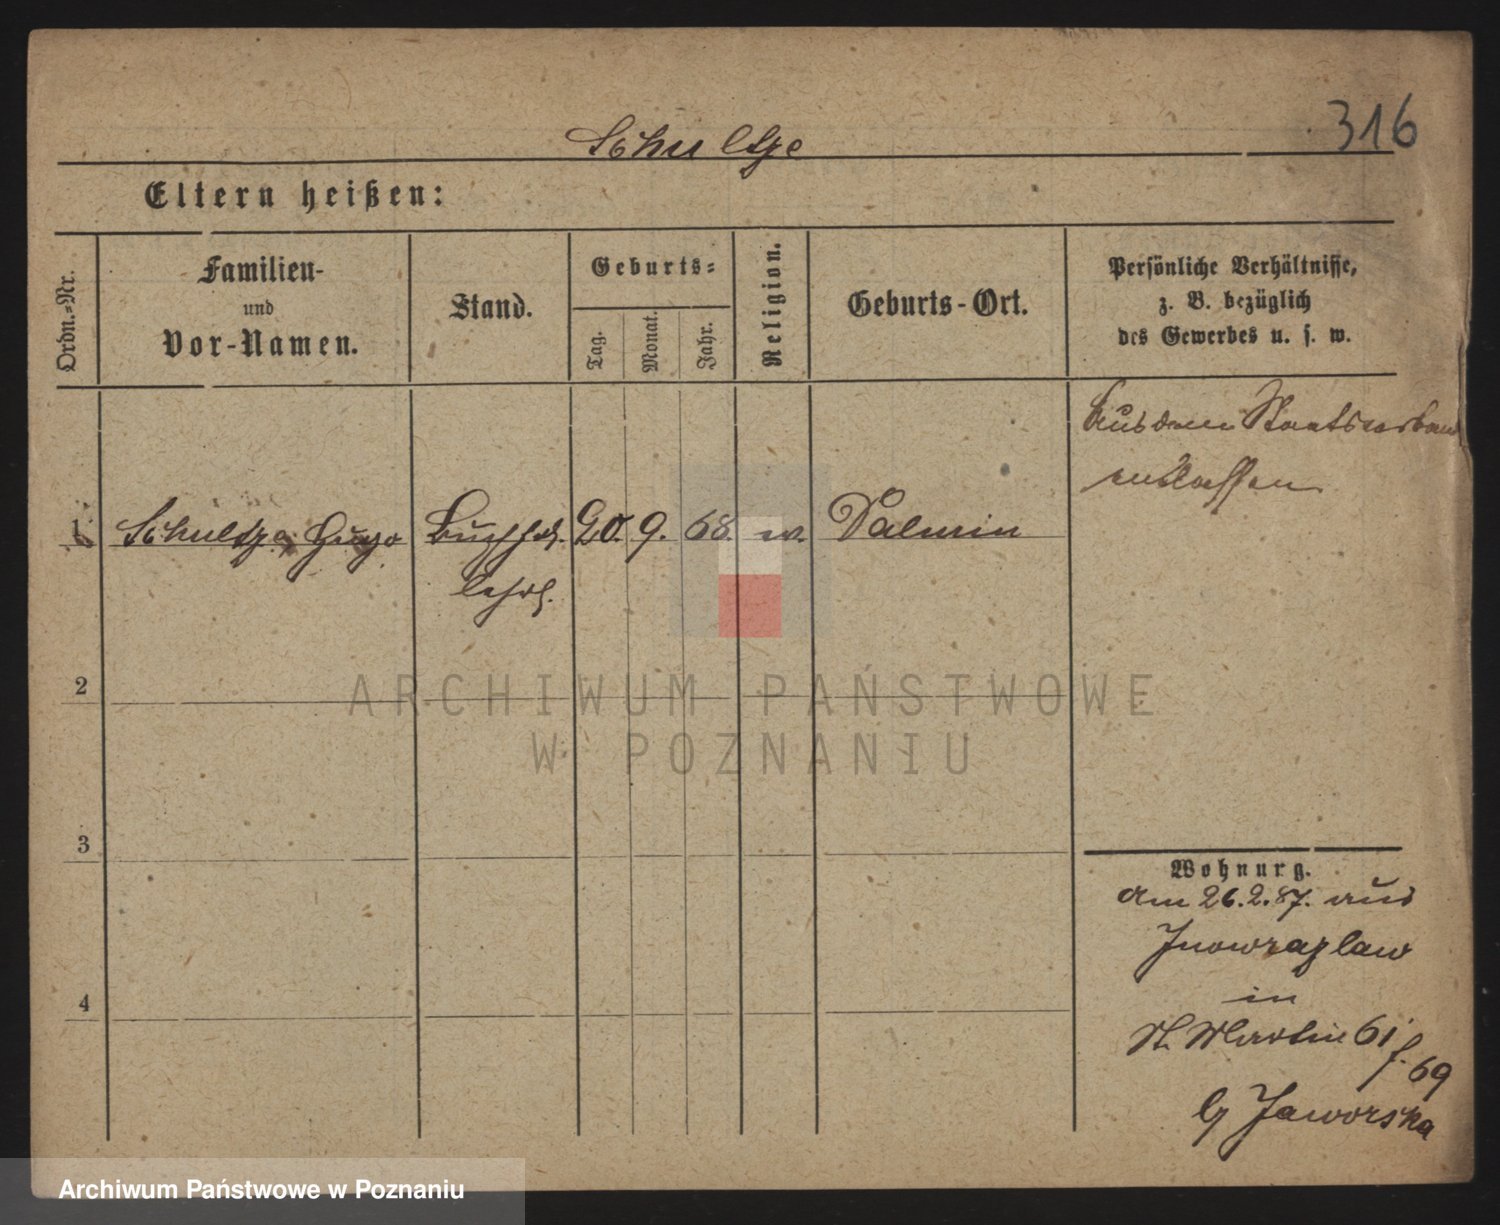 316
Schultze
Eltern heißen:
Ordn.-Nr.
Familien-
und
Vor-Namen.
Stand.
Geburts-
Tag.
Monat.
Jahr.
Religion.
Geburts-Ort.
Persönliche Verhältnisse,
z. B. bezüglich
des Gewerbes u. s. w.
Aus dem Staatsverban
entlassen
1 Schultze Hugo Buchhdl. 20. 9. 68. ev.
lehrl.
2
ARCHIWUM PAŃSTWOWE
W POZNANIU
3
4
Wohnung.
am 26.2.87. aus
Inowrazlaw
in
St. Martin 61
f. 69
b/ Jaworska
Archiwum Państwowe w Poznaniu